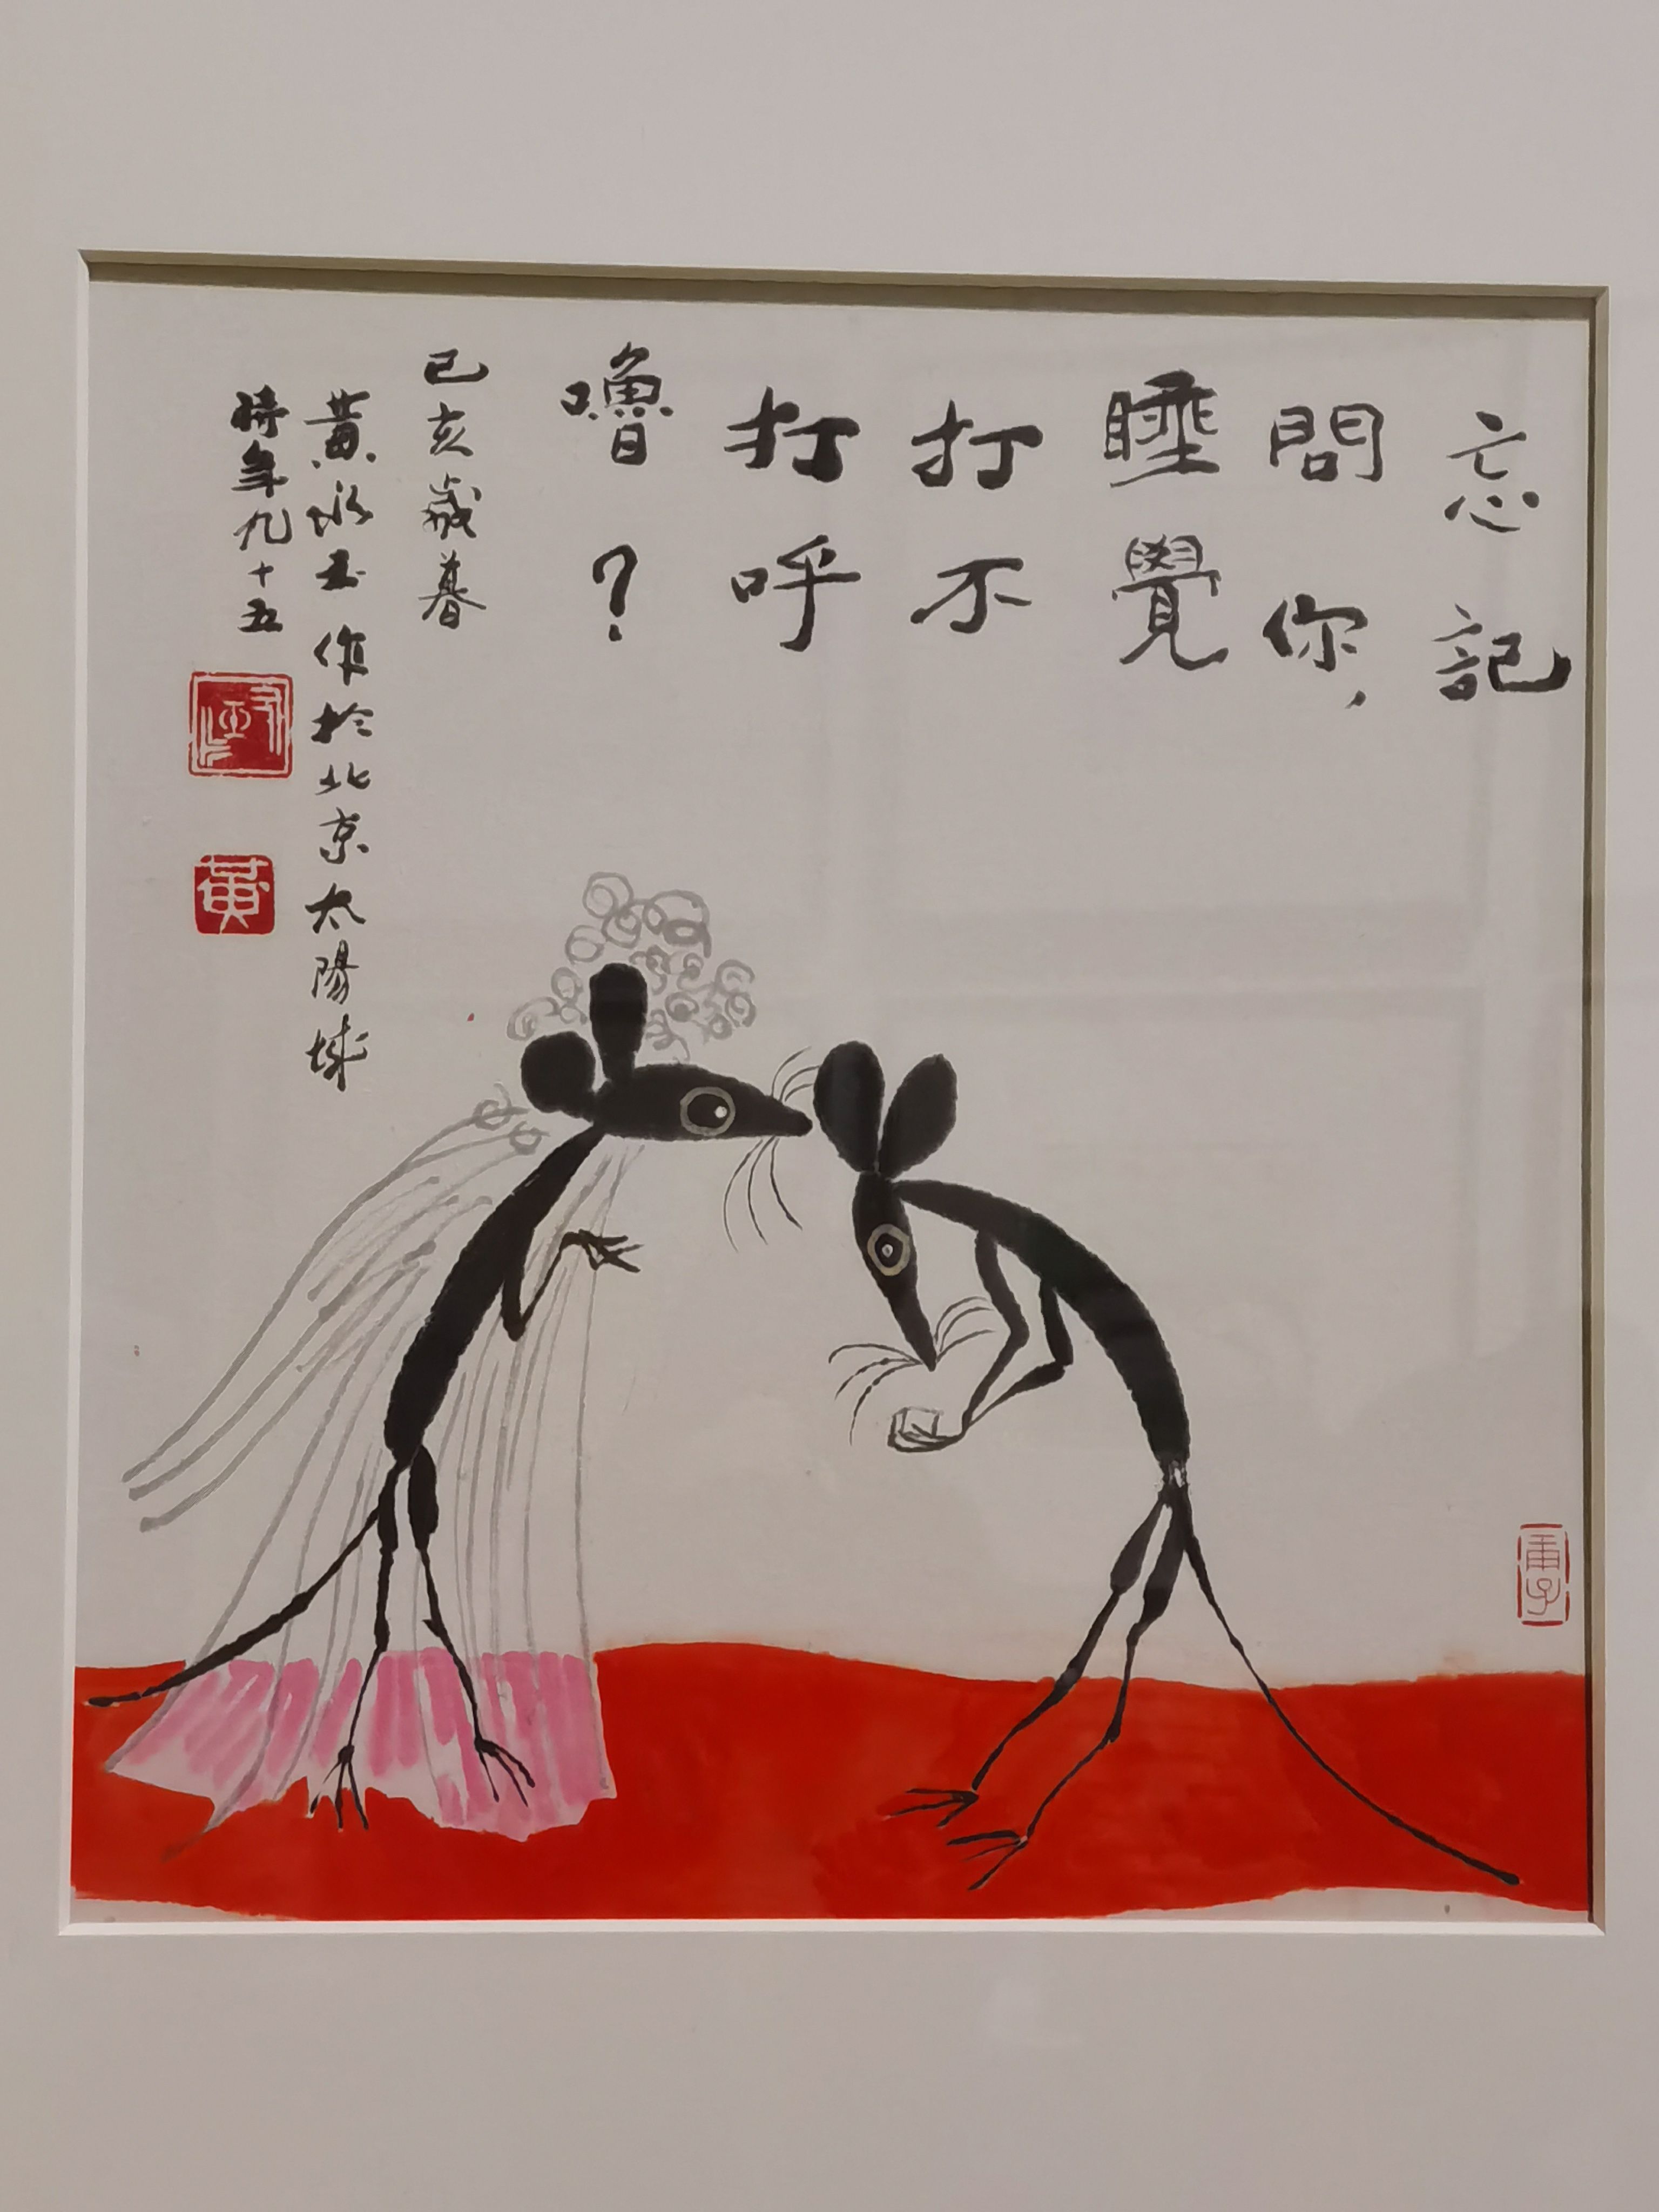 忘記
問你，
睡覺
打不
打呼
嚕？
己亥歲暮
黄永玉作於北京太陽城
時年九十五
黃